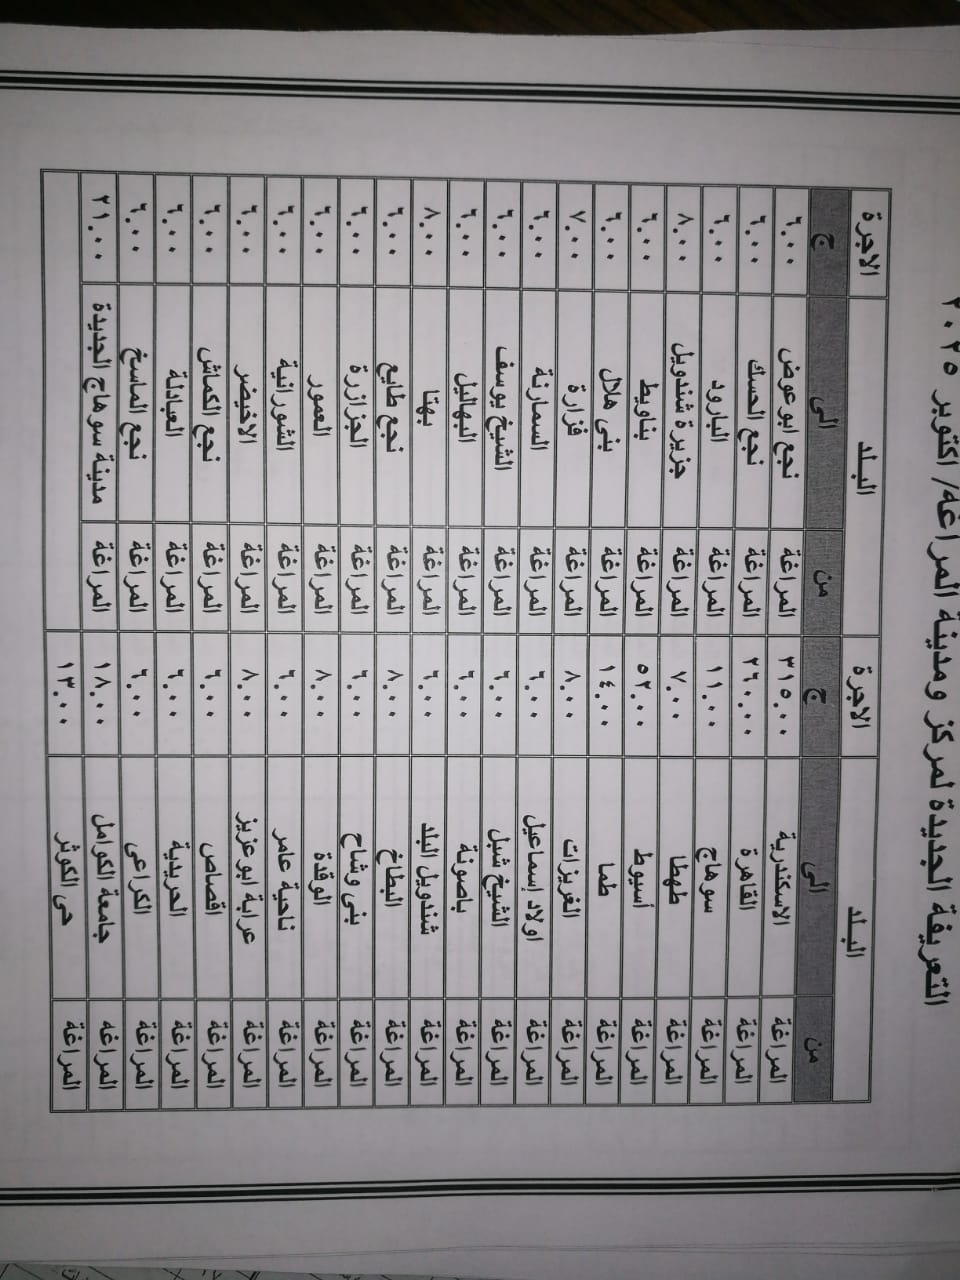 التعريفة الجديدة لمركز ومدينة المراغه/ اكتوبر ٢٠٢٥
البـلـد الاجرة البـلـد الاجرة
من الى ج من الى ج
المراغة الاسكندرية ٣١٥.٠٠ المراغة نجع ابوعوض ٦.٠٠
المراغة القاهرة ٢٦٠.٠٠ المراغة نجع الحسك ٦.٠٠
المراغة سوهاج ١١.٠٠ المراغة البارود ٦.٠٠
المراغة طهطا ٧.٠٠ المراغة جزيرة شندويل ٨.٠٠
المراغة أسيوط ٥٢.٠٠ المراغة بناويط ٦.٠٠
المراغة طما ١٤.٠٠ المراغة بنى هلال ٦.٠٠
المراغة الغريزات ٨.٠٠ المراغة فزارة ٧.٠٠
المراغة اولاد إسماعيل ٦.٠٠ المراغة السمارنة ٦.٠٠
المراغة الشيخ شبل ٦.٠٠ المراغة الشيخ يوسف ٦.٠٠
المراغة باصونة ٦.٠٠ المراغة البهاليل ٦.٠٠
المراغة شندويل البلد ٦.٠٠ المراغة بهتا ٨.٠٠
المراغة البطاخ ٨.٠٠ المراغة نجع طايع ٦.٠٠
المراغة بنى وشاح ٦.٠٠ المراغة الجزازرة ٦.٠٠
المراغة الوقدة ٨.٠٠ المراغة العمور ٦.٠٠
المراغة ناحية عامر ٦.٠٠ المراغة الشورانية ٦.٠٠
المراغة عرابة ابو عزيز ٨.٠٠ المراغة الاخيضر ٦.٠٠
المراغة اقصاص ٦.٠٠ المراغة نجع الكماش ٦.٠٠
المراغة الحريدية ٦.٠٠ المراغة العبادلة ٦.٠٠
المراغة الكراعى ٦.٠٠ المراغة نجع الماسخ ٦.٠٠
المراغه جامعة الكوامل ١٨.٠٠ المراغة مدينة سوهاج الجديدة ٢١.٠٠
المراغة حى الكوثر ١٣.٠٠